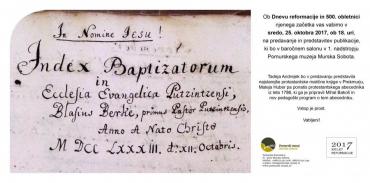 In Nomine Jesu!
Index Baptizatorum
in
Ecclesia Evangelica Putzintzensi,
Blasius Berke, primus Pastor Putzintzensis,
Anno A Nato Christo
M DCC LXXXIII. d. XII. Octobris.
Ob Dnevu reformacije in 500. obletnici
njenega začetka vas vabimo v
sredo, 25. oktobra 2017, ob 18. uri,
na predavanje in predstavitev publikacije,
ki bo v baročnem salonu v 1. nadstropju
Pomurskega muzeja Murska Sobota.
Tadeja Andrejek bo v predavanju predstavila
najstarejše protestantske matične knjige v Prekmurju,
Mateja Huber pa ponatis protestantskega abecednika
iz leta 1786, ki ga je pripravil Mihal Bakoš in
nov pedagoški program o tem abecedniku.
Vstop je prost.
Vabljeni!
2017
500 LET
REFORMACIJE